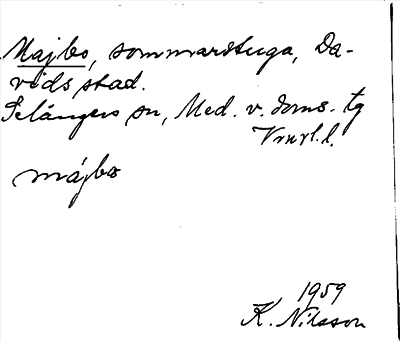 Majbo, sommarstuga, Da-
vids stad.
Selångers sn, Med. v. doms. tg
Vnrl. l.
májbo
1959
K. Nilsson